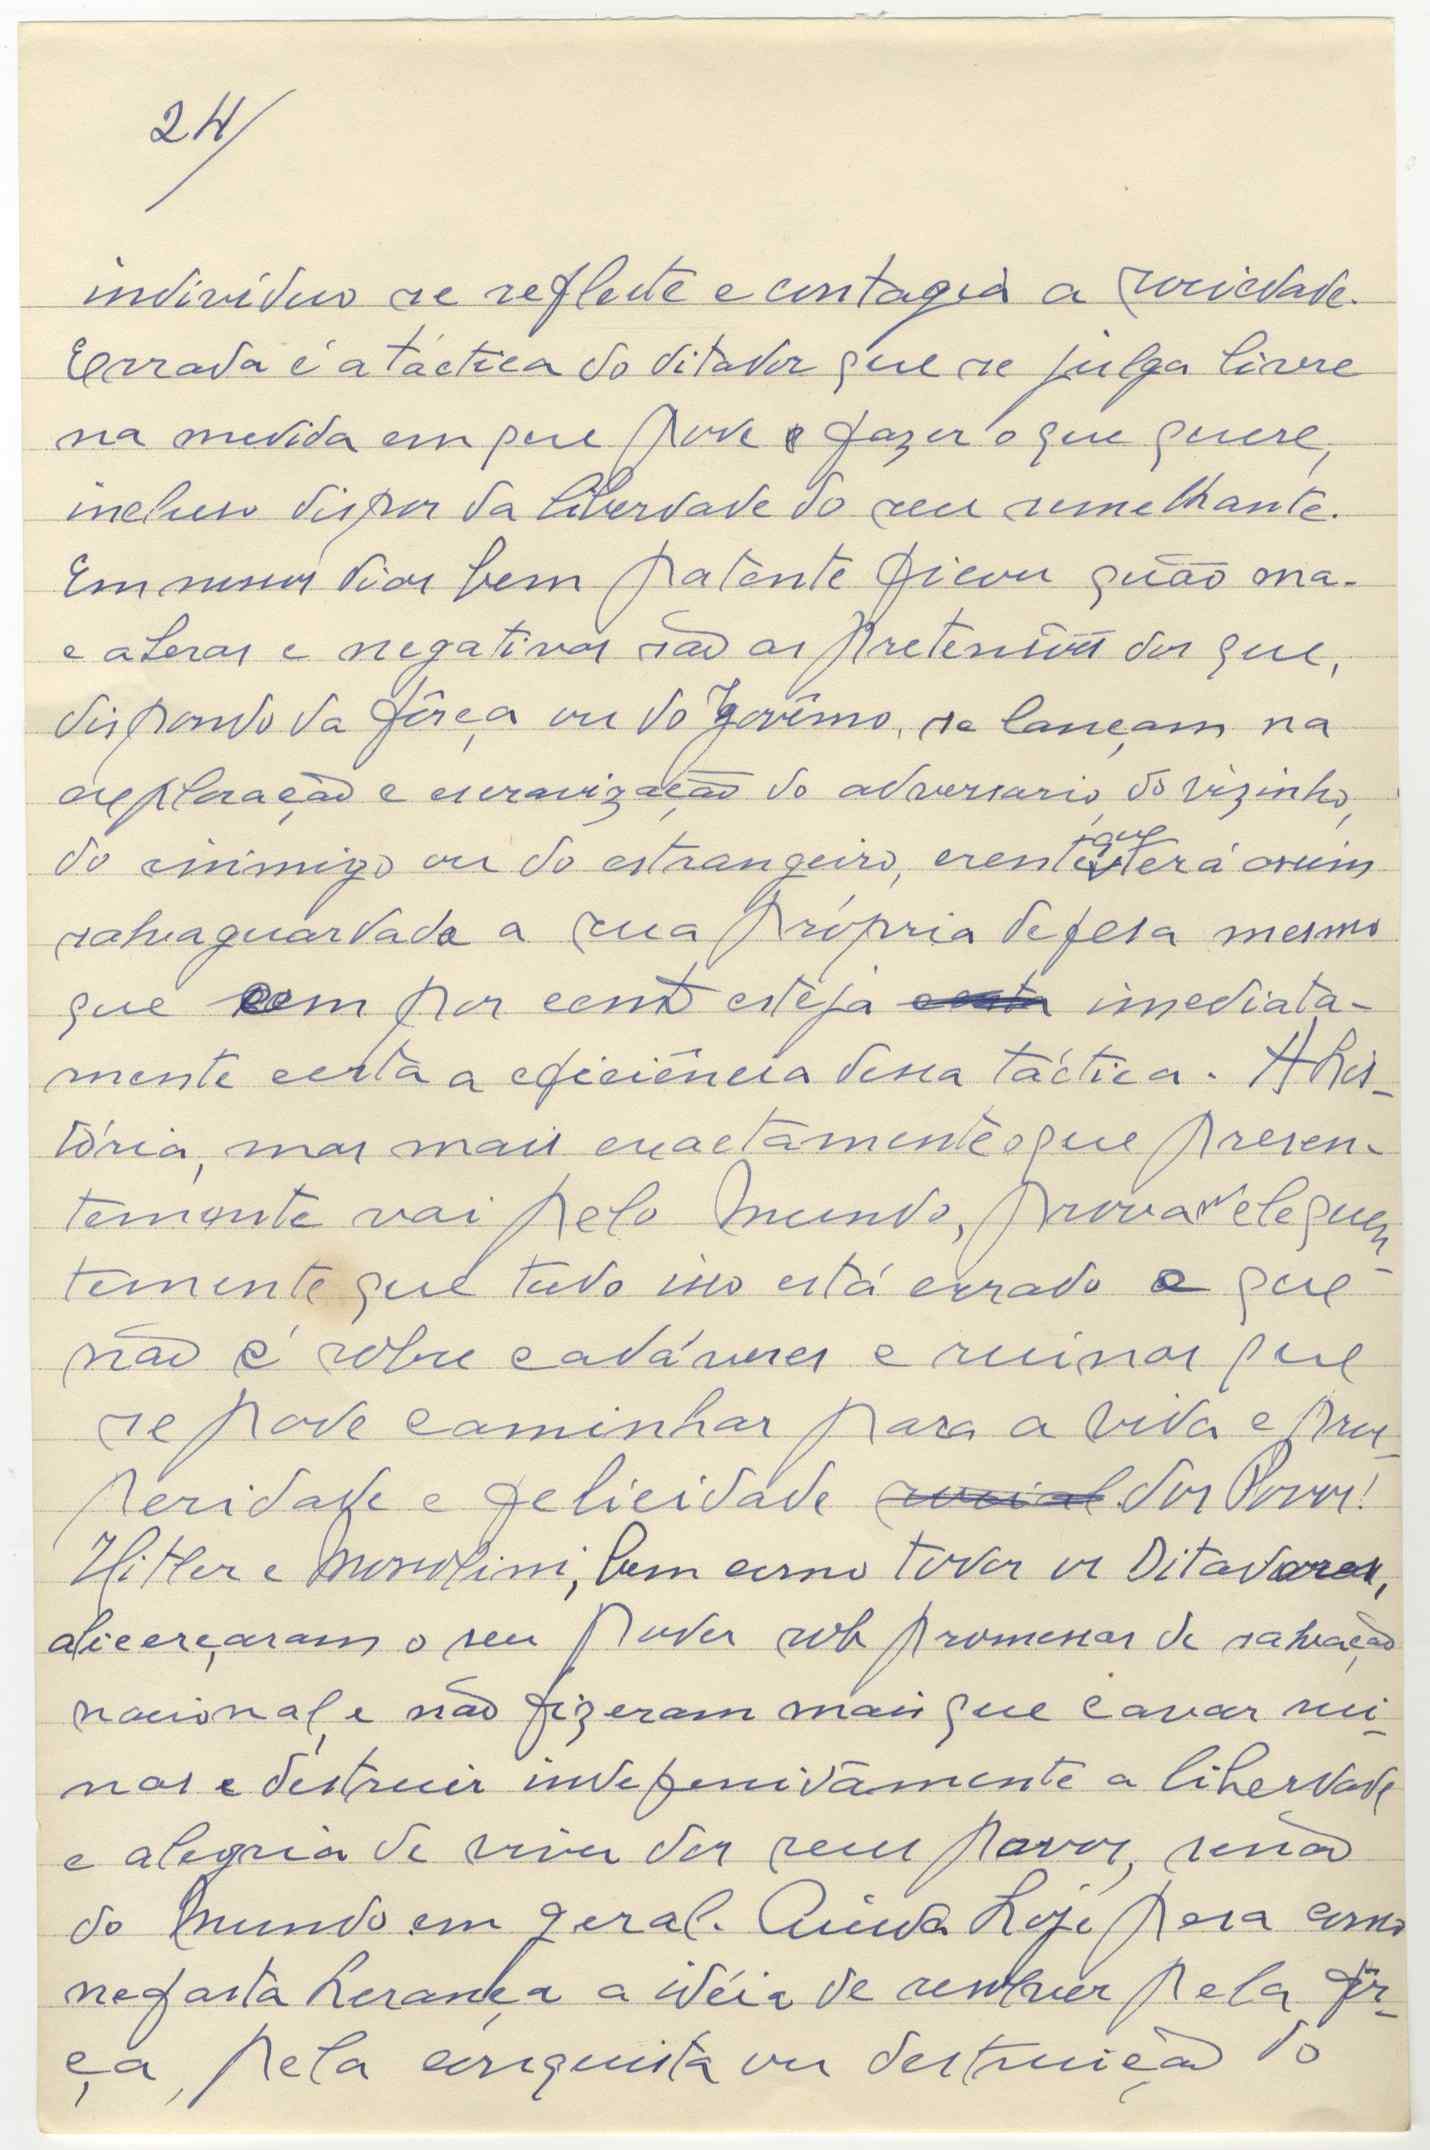 24/
indivíduo se reflecte e contagia a sociedade.
Errada é a táctica do ditador que se julga livre
na medida em que pode fazer o que quere,
incluso dispor da liberdade do seu semelhante.
Em nossos dias bem patente ficou quão ma-
cabras e negativas são as pretensões dos que,
dispondo da fôrça ou do govêrno, se lançam na
exploração e escravização do adversario, do vizinho,
do inimigo ou do estrangeiro, crente que terá assim
salvaguardada a sua própria defesa mesmo
que cem por cento esteja certa imediata-
mente certa a eficiência dessa táctica. A his-
tória, mas mais exactamente o que presen-
temente vai pelo Mundo, prova eloquen-
temente que tudo isso está errado e que
não é sobre cadáveres e ruinas que
se pode caminhar para a vida e pros-
peridade e felicidade social dos Povos!
Hitler e Mussolini, bem como todos os Ditadores,
alicerçaram o seu poder sob promessas de salvação
nacional, e não fizeram mais que cavar rui-
nas e destruir indefenidamente a liberdade
e alegria de viver dos seus povos, senão
do Mundo em geral. Ainda hoje pesa como
nefasta herança a idéia de resolver pela fôr-
ça, pela conquista ou destruição do